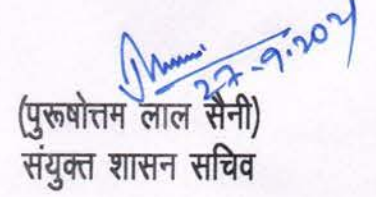 27-9-2021
(पुरूषोत्तम लाल सैनी)
संयुक्त शासन सचिव